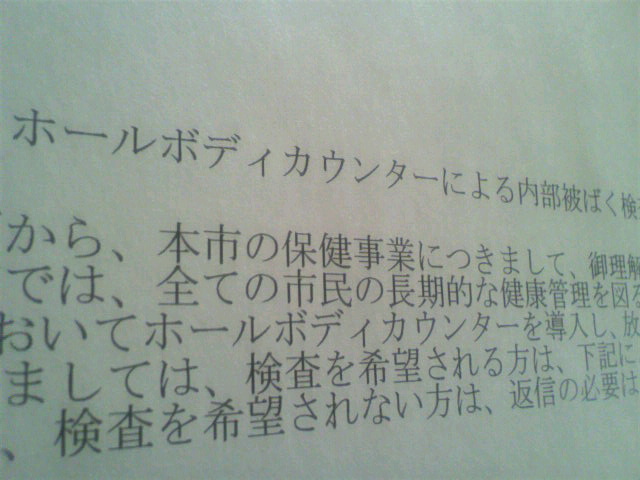 ホールボディカウンターによる内部被ばく検
から、本市の保健事業につきまして、御理解
では、全ての市民の長期的な健康管理を図る
おいてホールボディカウンターを導入し、放
ましては、検査を希望される方は、下記に
、検査を希望されない方は、返信の必要は